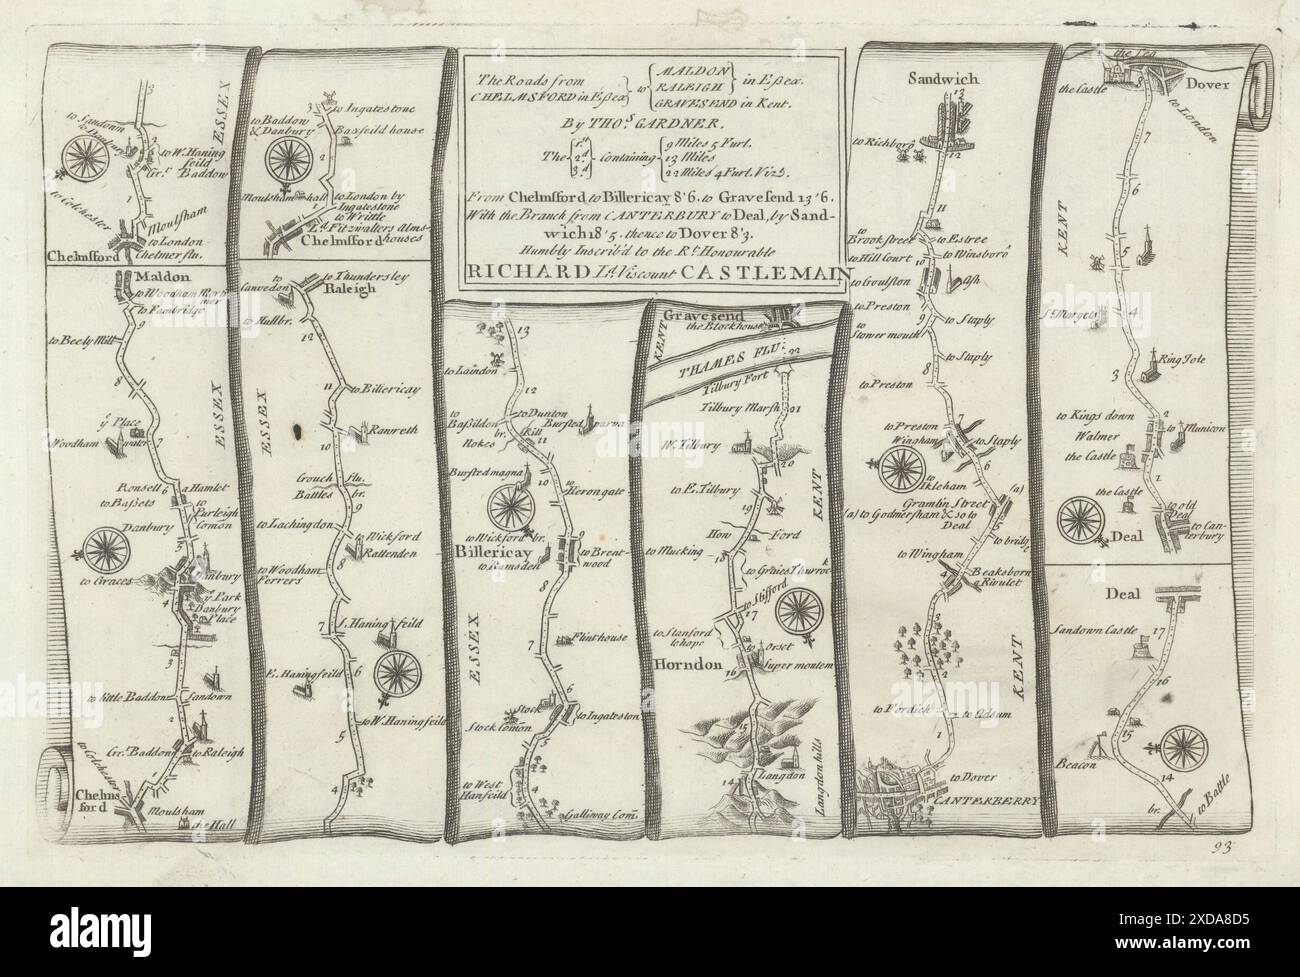 The Roads from
CHELMSFORD in Eßex
to
MALDON
RALEIGH
in Eßex.
GRAVESEND in Kent.
By THO.S GARDNER.
The 1.st 2.d 3.d containing
9 Miles 5 Furl.
13 Miles
22 Miles 4 Furl. Vizt.
From Chelmsford to Billericay 8'6. to Gravesend 13'6.
With the Branch from CANTERBURY to Deal, by Sand-
wich 18'5. thence to Dover 8'3.
Humbly Inscrib'd to the R.t Honourable
RICHARD L.d Viscount CASTLEMAIN
ESSEX
to Sandown
Danbury
to W. Haning
feild
Gr.t Baddow
to Colchester
Moulsham
to London
Chelmsford
Chelmer flu.
Maldon
to Woodham Mort
mer
to Fambridge
9
to Beely Mill
8
ESSEX
y.e Place
Woodham
water
7
Ronsell
6
a Hamlet
to Baßets
to Purleigh
Comon
Danbury
5
to Graces
Danbury
4
y.e Park
Danbury
Place
3
to little Baddow
Sandown
2
Gr.t Baddow
to Raleigh
to Colchester
1
Chelms
ford
Moulsham
the Hall
3
to Ingatestone
to Baddow
& Danbury
Baxfeild house
2
Moulsham hall
1
to London by
Ingatestone
to Writtle
L.d Fitzwalters Alms
houses
Chelmsford
to Canvedon
to Thundersley
Raleigh
to Hullbr.
12
ESSEX
11
to Billericay
Ranreth
Crouch flu.
Battles br.
9
to Lachingdon
to Wickford
Rattenden
to Woodham
Ferrers
8
7
S. Haningfeild
E. Haningfeild
6
to W. Haningfeild
5
4
13
to Laindon
12
to Baßildon
to Dunton
Bursted parva
br.
Kill
Nokes
11
Bursted magna
10
to Kerongate
to Wickford br.
9
Billericay
to Ramsden
to Brent-
wood
8
ESSEX
Flint house
7
6
Stock
to Ingateston
Stock Comon
5
to West
Hanfeild
Galliway Com.
KENT
Gravesend
the Blockhouse
THAMES FLU.
22
Tilbury Fort
Tilbury Marsh
21
W. Tilbury
20
KENT
to E. Tilbury
19
How
Ford
to Mucking
18
to Graies Thurrock
to Stifford
17
to Stanford
le hope
Orset
Horndon
16
Super montem
15
Langdon hills
14
Langdon
Sandwich
13
to Richboro
12
11
to Brook street
to Estree
to Hill Court
10
to Winsboro
to Goulston
Ash
to Preston
9
to Staply
to
Stower mouth
8
to Staply
to Preston
7
to Preston
Wingham
to Staply
6
to
Ikleham
Gramlin Street
(a)
(a) to Godmersham & so to
Deal
5
to bridge
to Wingham
4
Beaksborn
Rivulet
KENT
to Fordich
2
to Adsum
1
to Dover
CANTERBERRY
the Sea
the Castle
Dover
to London
7
6
KENT
5
S.t Margets
4
3
Ring Sole
to Kings down
2
Walmer
to Municon
the Castle
1
the Castle
to old
Deal
Deal
to Can-
terbury
Deal
17
Sandown Castle
16
15
Beacon
14
br.
to Battle
93
alamy
Image ID: 2XDA8D5
www.alamy.com